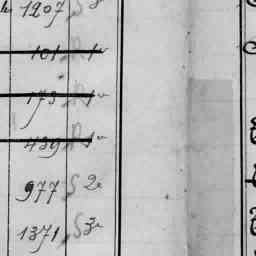 1207 S
101 R 1
173 R 1
439 R 1
977 S 2
1371 S 3